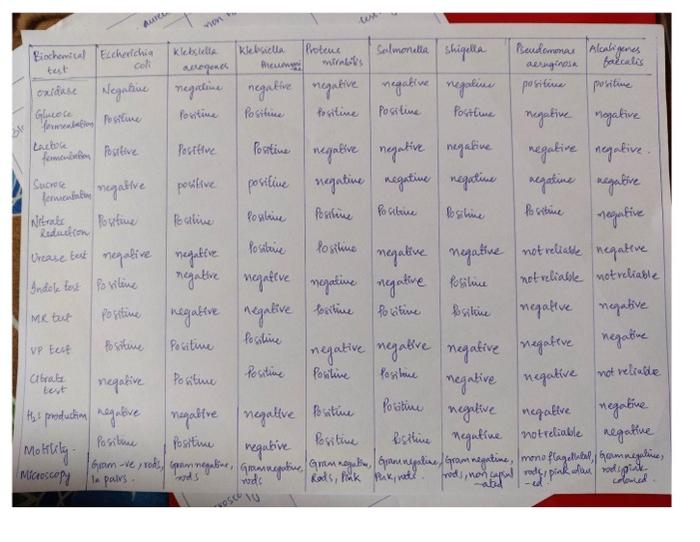 Biochemical test | Escherichia coli | Klebsiella aerogenes | Klebsiella Pneumoniae | Proteus mirabilis | Salmonella | Shigella | Pseudomonas aeruginosa | Alcaligenes faecalis
Oxidase | Negative | negative | negative | negative | negative | negative | positive | positive
Glucose fermentation | Positive | Positive | Positive | Positive | Positive | Positive | negative | negative
Lactose fermentation | Positive | Positive | Positive | negative | negative | negative | negative | negative.
Sucrose fermentation | negative | positive | positive | negative | negative | negative | negative | negative
Nitrate Reduction | Positive | Positive | Positive | Positive | Positive | Positive | Positive | negative
Urease test | negative | negative | Positive | Positive | negative | negative | not reliable | negative
Indole test | Positive | negative | negative | negative | negative | Positive | not reliable | not reliable
MR test | Positive | negative | negative | Positive | Positive | Positive | negative | negative
VP test | Positive | Positive | Positive | negative | negative | negative | negative | negative
Citrate test | negative | Positive | Positive | Positive | Positive | negative | negative | not reliable
H2S production | negative | negative | negative | Positive | Positive | negative | negative | negative
Motility. | Positive | Positive | negative | Positive | Positive | negative | not reliable | negative
Microscopy | Gram -ve, rods, In pairs. | Gram negative, rods | Gram negative, rods | Gram negative, Rods, Pink | Gram negative, Pink, rods. | Gram negative, rods, non capsul-ated | mono flagellated, rods, pink | Gram negative, rods, pink coloured.